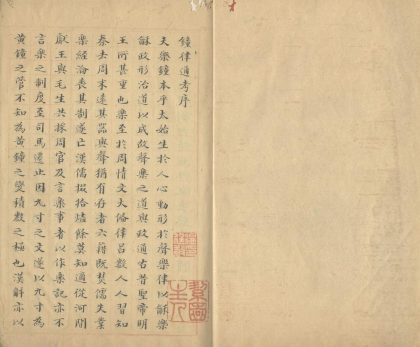 鐘律通考序
夫樂鐘本乎太始生於人心動形於聲樂律以龢樂
龢政形治道以成故聲樂之道與政通古昔聖帝明
王所甚重也樂至於周情文大俻律吕數人人習知
秦去周末遠其器與聲猶有存者六籍既焚儒失業
樂經淪喪其制遂亡漢儒掇拾燼餘莫知適從河間
獻王與毛生共採周官及言樂事者以作樂記亦不
言樂之制度至司馬遷止因九寸之文遂以九寸為
黄鐘之管不知為黄鐘之變積數之極也漢斛亦以